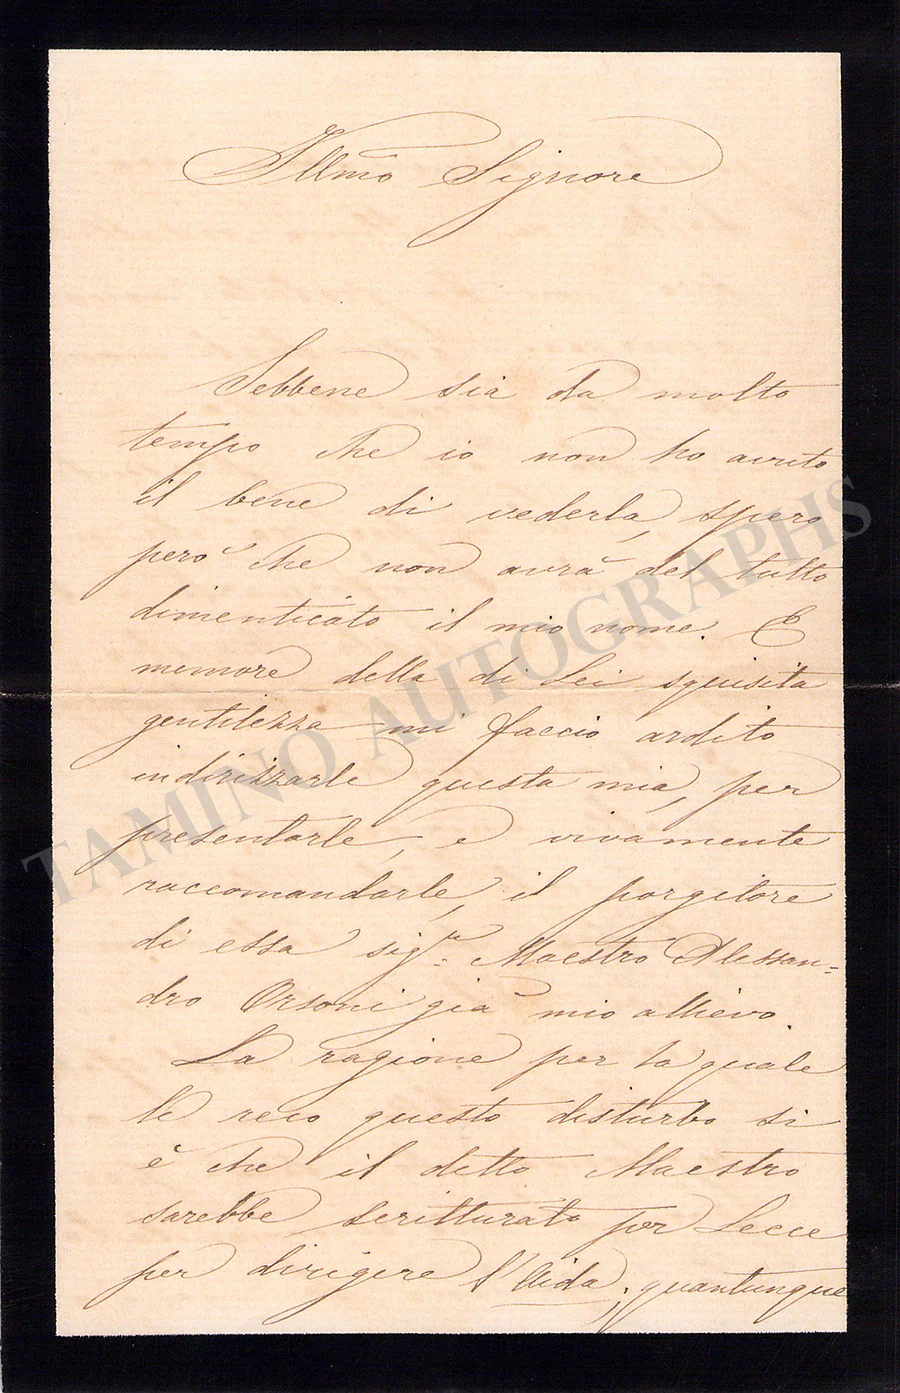 Illmo Signore
Sebbene sia da molto
tempo che io non ho avuto
il bene di vederla, spero
però che non avrà del tutto
dimenticato il mio nome. E
memore della di Lei squisita
gentilezza mi faccio ardito
indirizzarle questa mia, per
presentarle, e vivamente
raccomandarle, il porgitore
di essa sigr. Maestro Alessan=
dro Orsoni già mio allievo.
La ragione per la quale
le reco questo disturbo si
è che il detto Maestro
sarebbe scritturato per Lecce
per dirigere l'Aida; quantunque
TAMINO AUTOGRAPHS